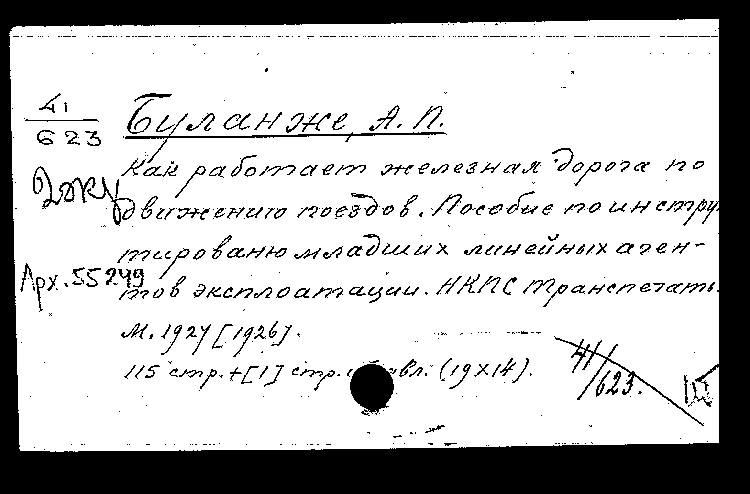 41
623
Буланже, А. П.
Как работает железная дорога по
2 экз
движению поездов. Пособие по инстру
тированю младших линейных аген-
Арх. 55249
тов эксплоатации. НКПС Транспечать.
М. 1927 [1926].
115 стр. + [1] стр. (19×14).
41/
/623.